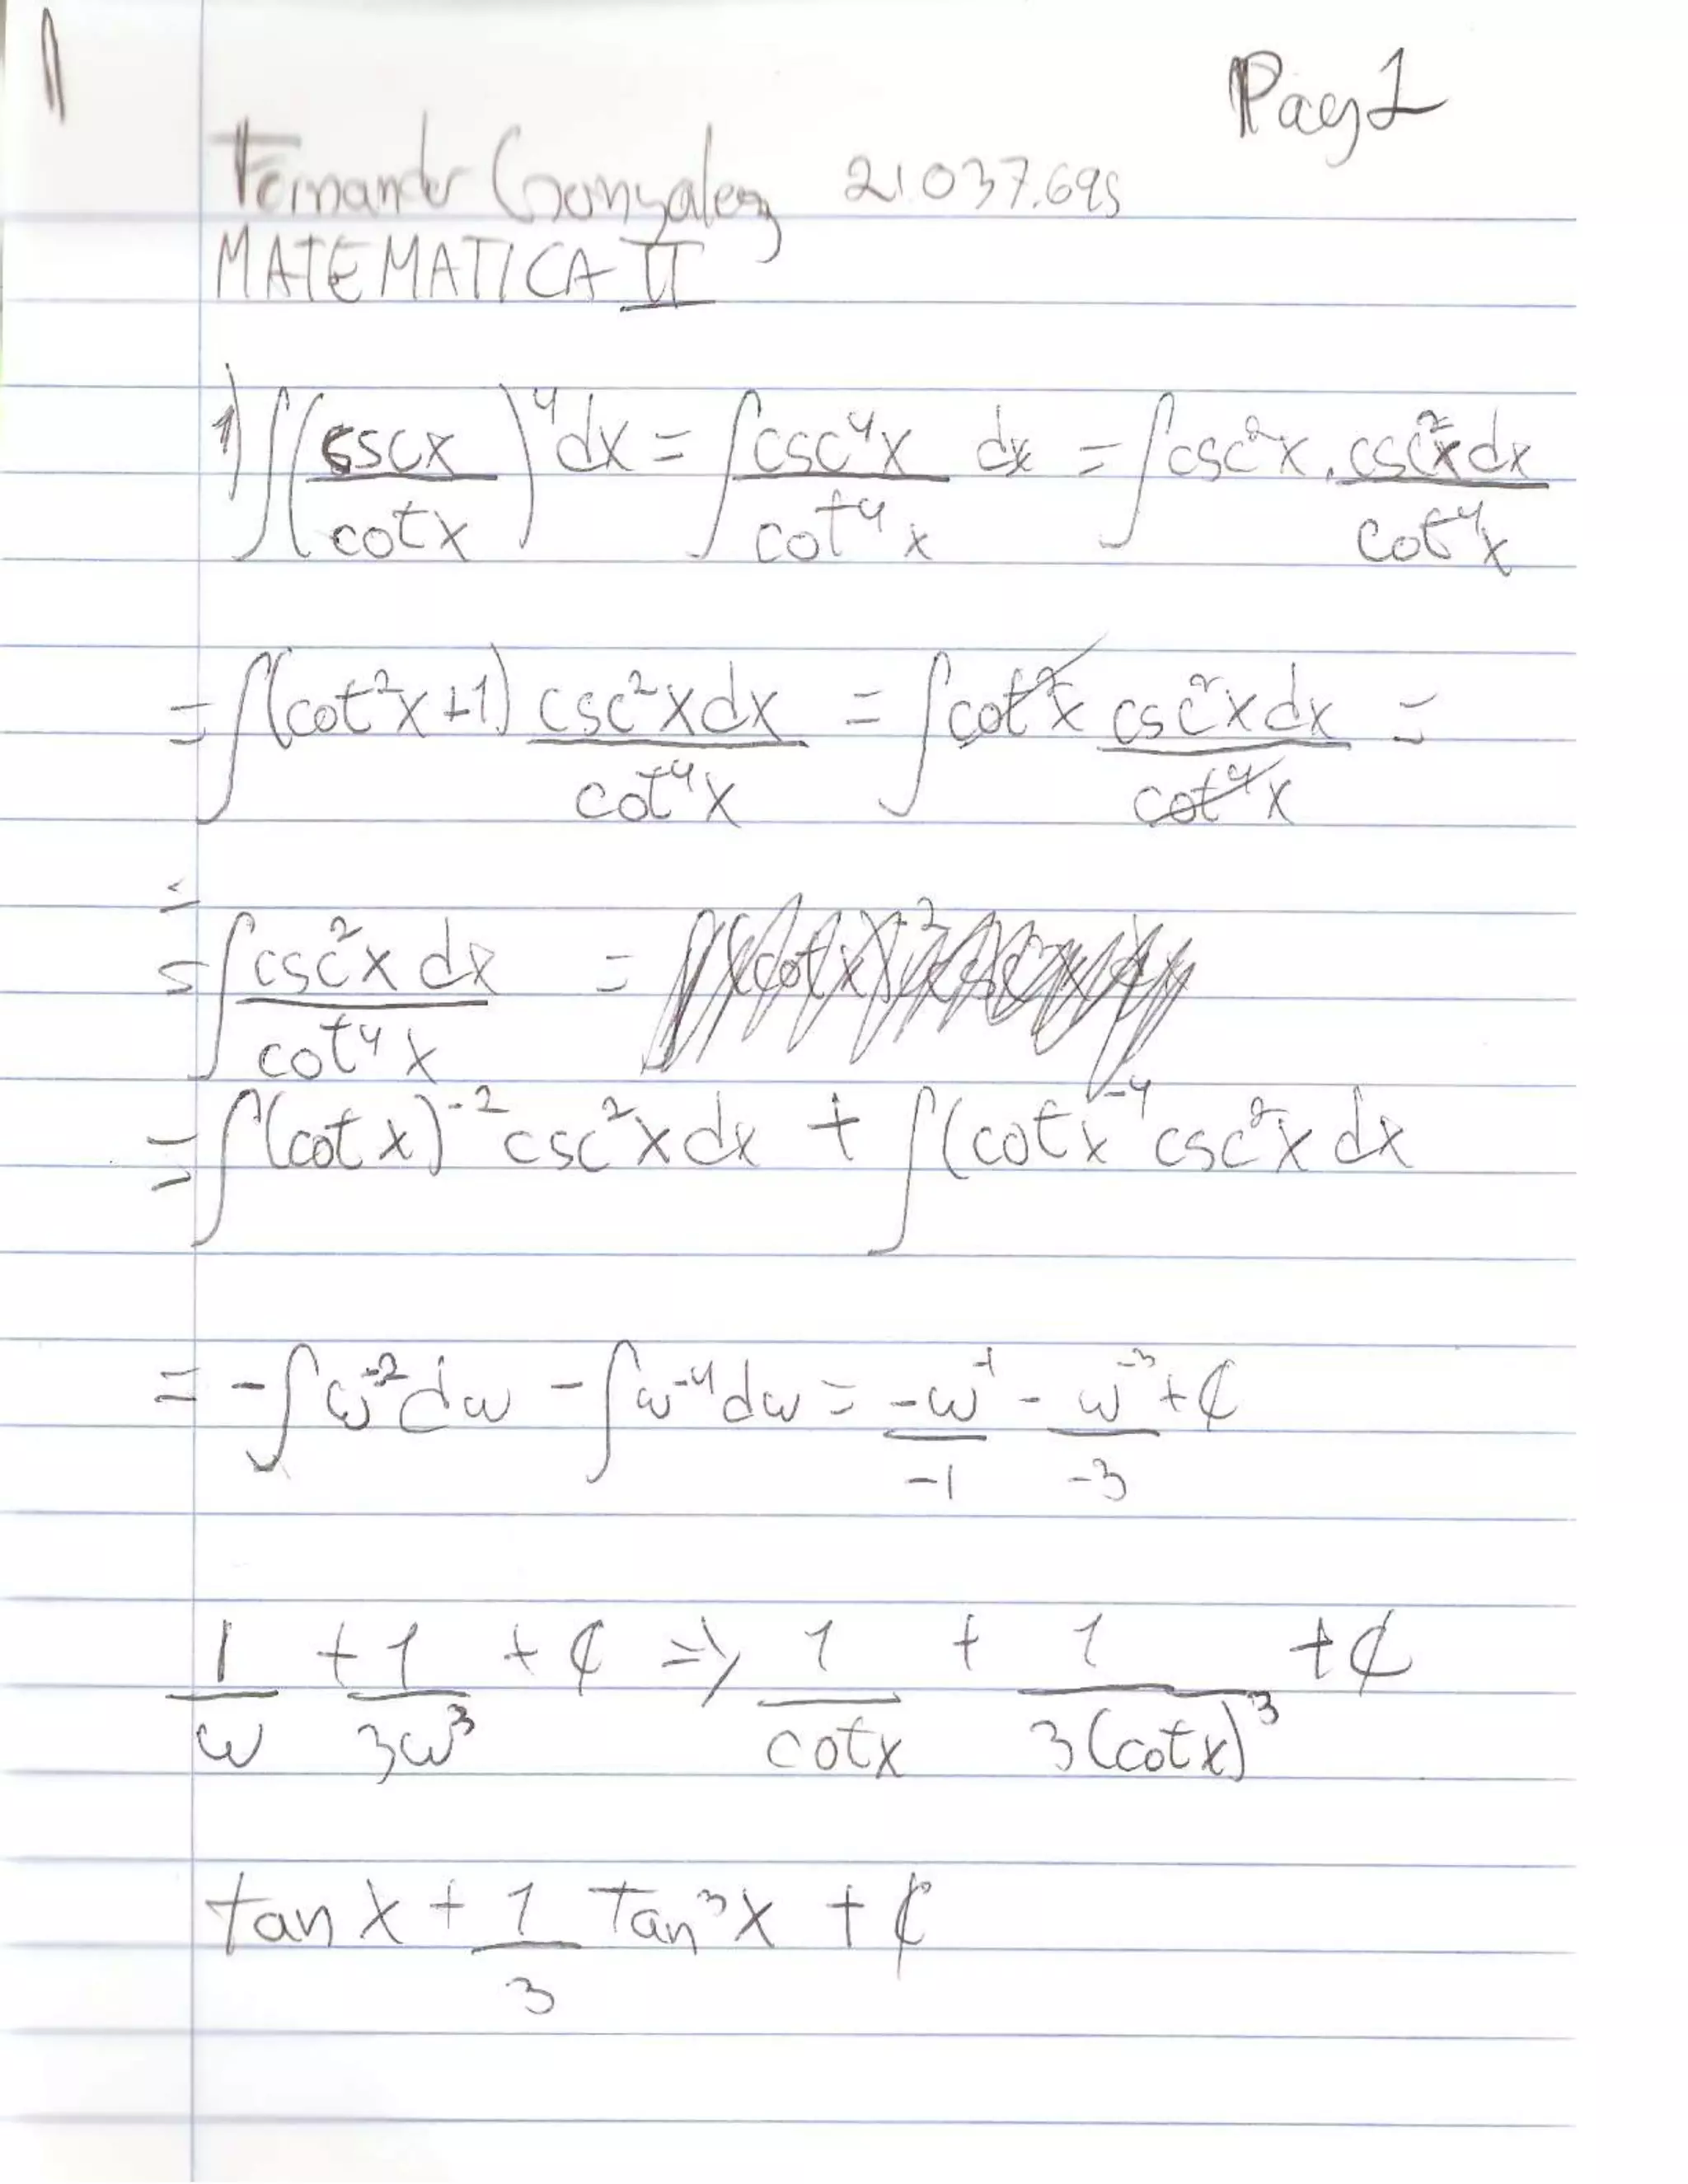 Pag 1
Fernando Gonzalez 21.037.695
MATEMATICA II
1) ∫(cscx/cotx)^4 dx = ∫csc^4x/cot^4x dx = ∫csc^2x . csc^2x dx/cot^4x
= ∫(cot^2x+1) csc^2x dx/cot^4x = ∫cot^2x csc^2x dx/cot^4x =
= ∫csc^2x dx/cot^4x =
= ∫(cot x)^-2 csc^2x dx + ∫(cotx^-4 csc^2x dx
= -∫w^-2 dw - ∫w^-4 dw = -w^-1/-1 - w^-3/-3 + ₵
1/w + 1/3w^3 + ₵ => 1/cotx + 1/3(cotx)^3 + ₵
tan x + 1/3 Tan^3x + ₵